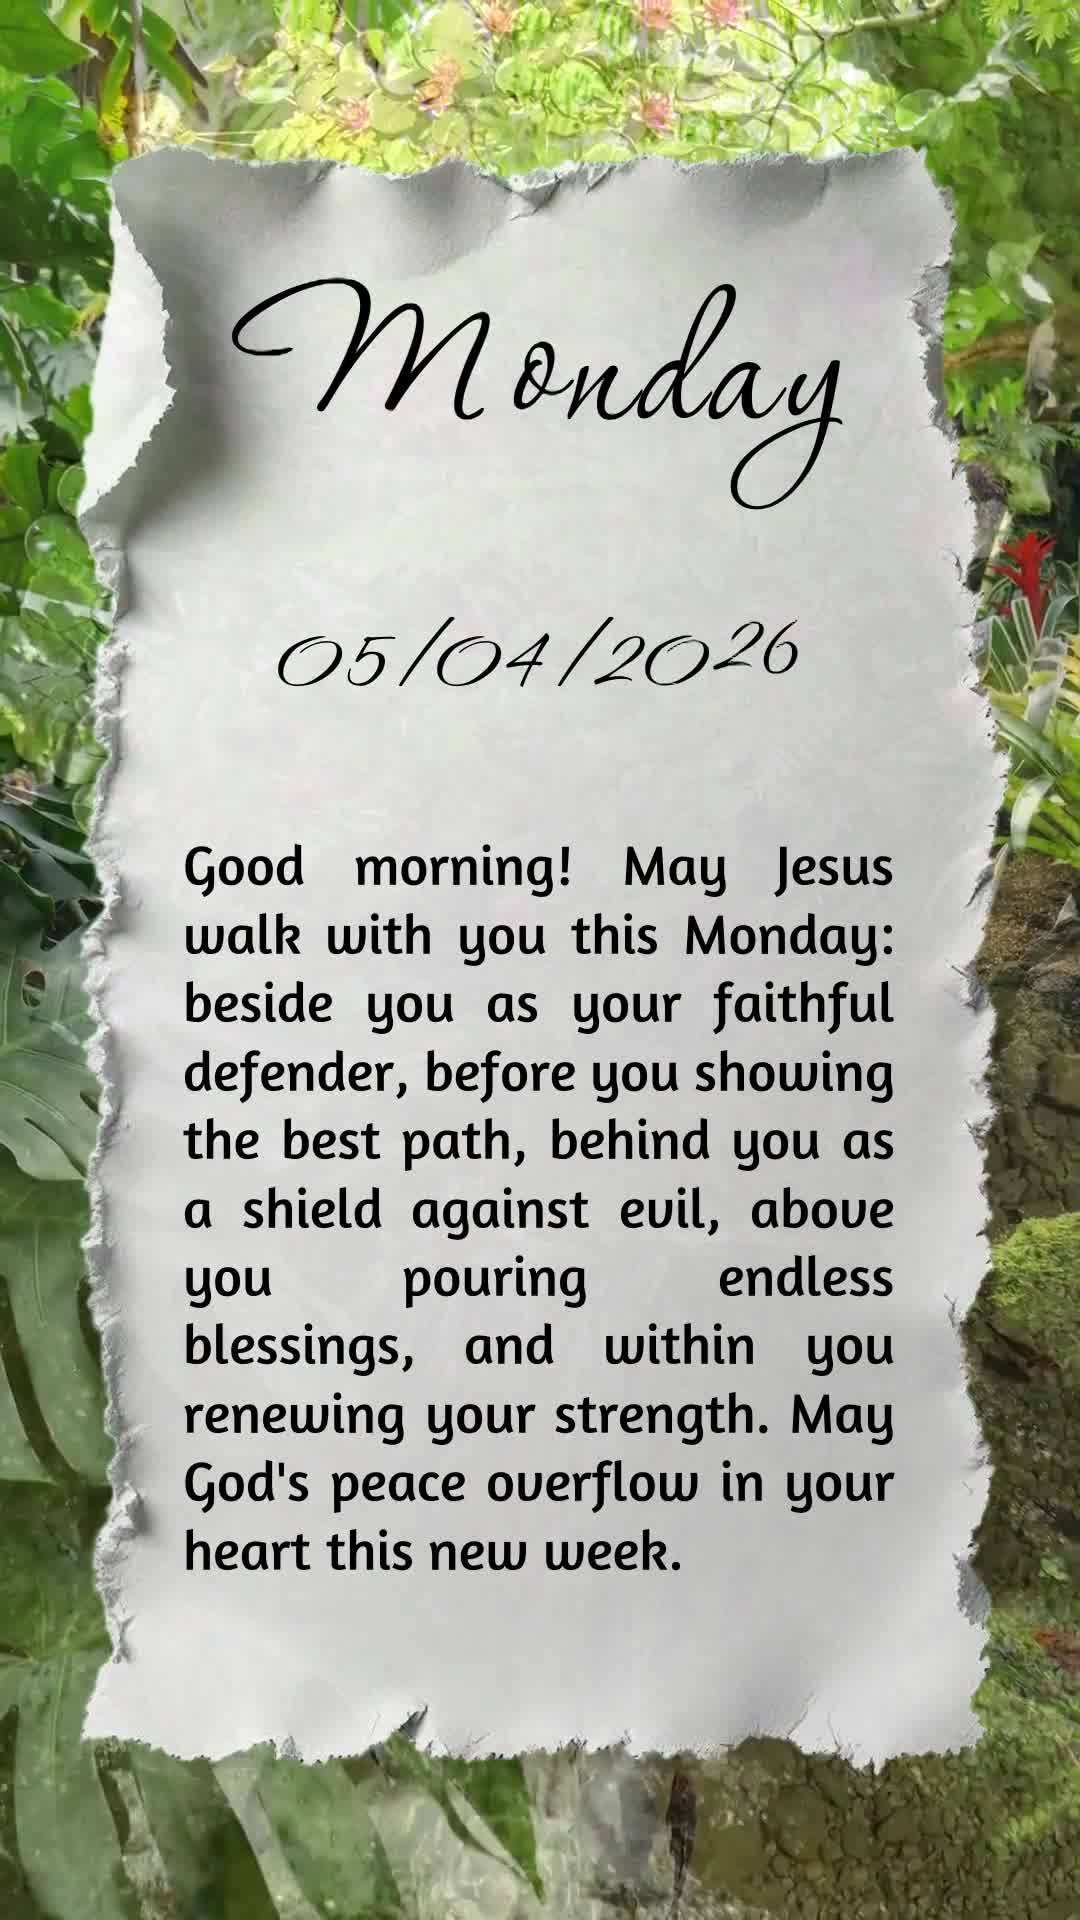 Monday
05/04/2026
Good morning! May Jesus
walk with you this Monday:
beside you as your faithful
defender, before you showing
the best path, behind you as
a shield against evil, above
you pouring endless
blessings, and within you
renewing your strength. May
God's peace overflow in your
heart this new week.